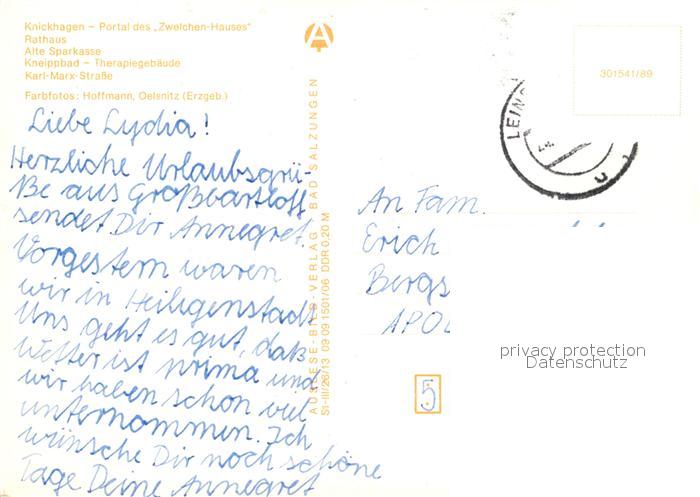 Knickhagen – Portal des „Zwelchen-Hauses"
Rathaus
Alte Sparkasse
Kneippbad – Therapiegebäude
Karl-Marx-Straße
Farbfotos: Hoffmann, Oelsnitz (Erzgeb.)
Liebe Lydia!
Herzliche Urlaubsgrü-
ße aus Großbartloff
sendet Dir Annegret.
Vorgestern waren
wir in Heiligenstadt
Uns geht es gut, das
Wetter ist prima und
wir haben schon viel
unternommen. Ich
wünsche Dir noch schöne
Tage Deine Annegret
AUSLESE-BILD-VERLAG BAD SALZUNGEN
St-III/26/13 09 09 1501/06 DDR 0,20 M
301541/89
LEIN
An Fam.
Erich
Bergs
APOL
5
privacy protection
Datenschutz